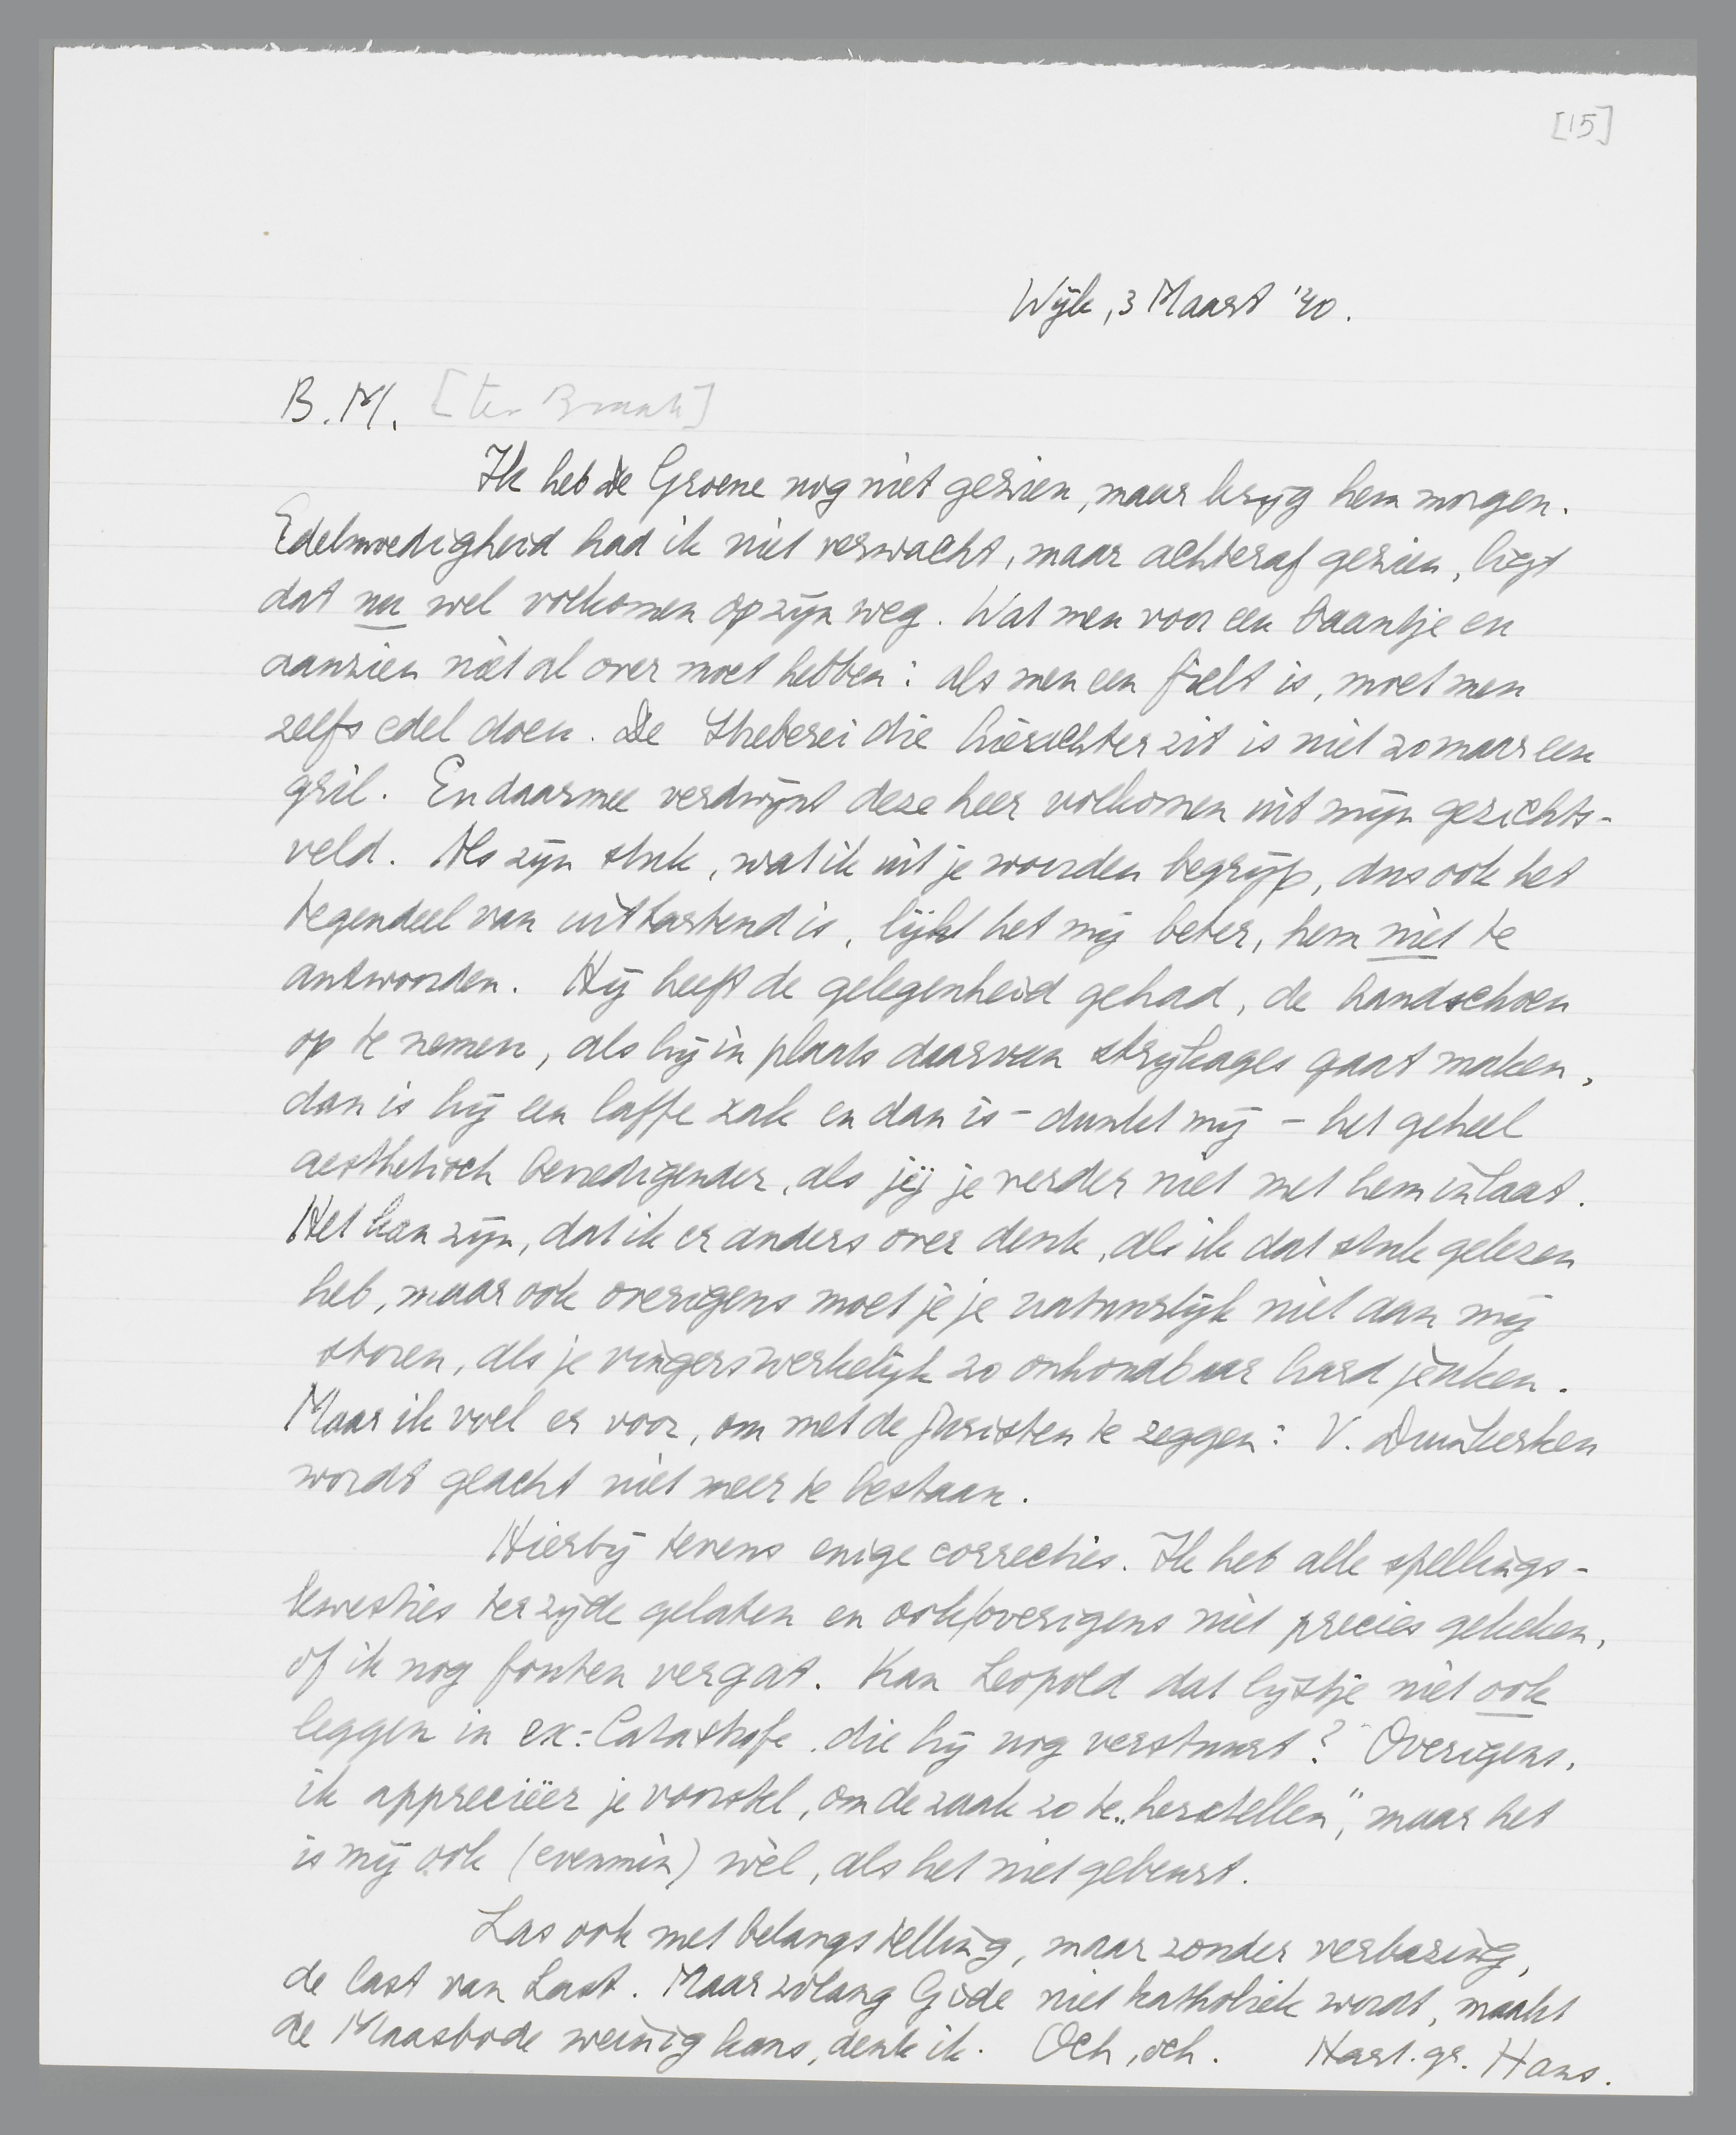 [15]
Wijk, 3 Maart '40.
B.M. [ter Braak]
Ik heb de Groene nog niet gezien, maar krijg hem morgen.
Edelmoedigheid had ik niet verwacht, maar achteraf gezien, ligt
dat nu wel volkomen op zijn weg. Wat men voor een baantje en
aanzien niet al over moet hebben: als men een fielt is, moet men
zelfs edel doen. De Streberei die hierachter zit is niet zomaar een
gril. En daarmee verdwijnt deze heer volkomen uit mijn gezichts-
veld. Als zijn stuk, wat ik uit je woorden begrijp, dus ook het
tegendeel van uittartend is, lijkt het mij beter, hem niet te
antwoorden. Hij heeft de gelegenheid gehad, de handschoen
op te nemen, als hij in plaats daarvan strijkages gaat maken,
dan is hij een laffe zak en dan is - dunkt mij - het geheel
aesthetisch bevredigender, als jij je verder niet met hem inlaat.
Het kan zijn, dat ik er anders over denk, als ik dat stuk gelezen
heb, maar ook overigens moet je je natuurlijk niet aan mij
storen, als je vingers werkelijk zo onhoudbaar hard jeuken.
Maar ik voel er voor, om met de juristen te zeggen: V. Duinkerken
wordt geacht niet meer te bestaan.
Hierbij tevens enige correcties. Ik heb alle spellings-
kwesties terzijde gelaten en ook overigens niet precies gekeken,
of ik nog fouten vergat. Kan Leopold dat lijstje niet ook
leggen in ex: Catastrofe die hij nog verstuurt? Overigens,
ik appreciëer je voorstel, om de zaak zo te „herstellen", maar het
is mij ook (evenmin) wèl, als het niet gebeurt.
Las ook met belangstelling, maar zonder verbazing,
de last van Last. Maar zolang Gide niet katholiek wordt, maakt
de Maasbode weinig kans, denk ik. Och, och. Hart. gr. Hans.